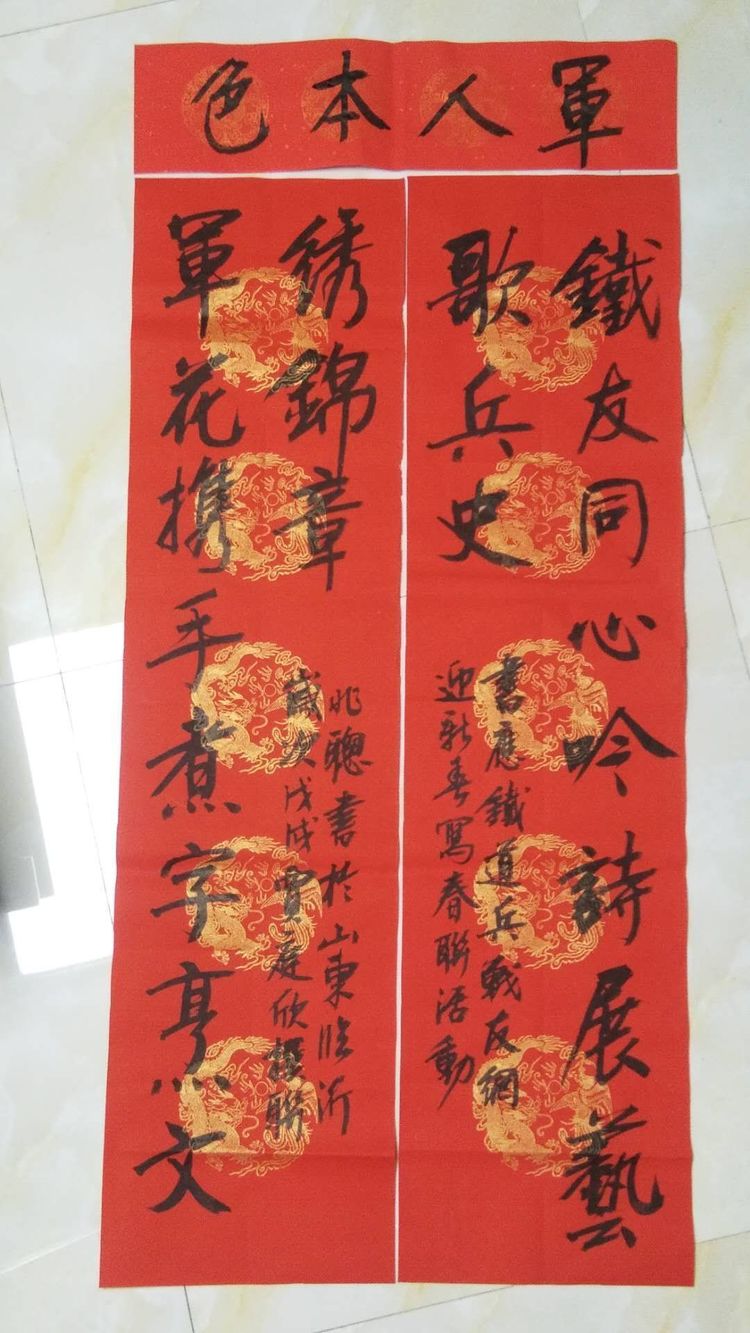 軍人本色
鐵友同心吟詩展藝
歌兵史
書應鐵道兵戰友網
迎新春寫春聯活動
軍花携手煮字烹文
綉錦章
歲次戊戌欣撰聯
兆聰書於山東臨沂